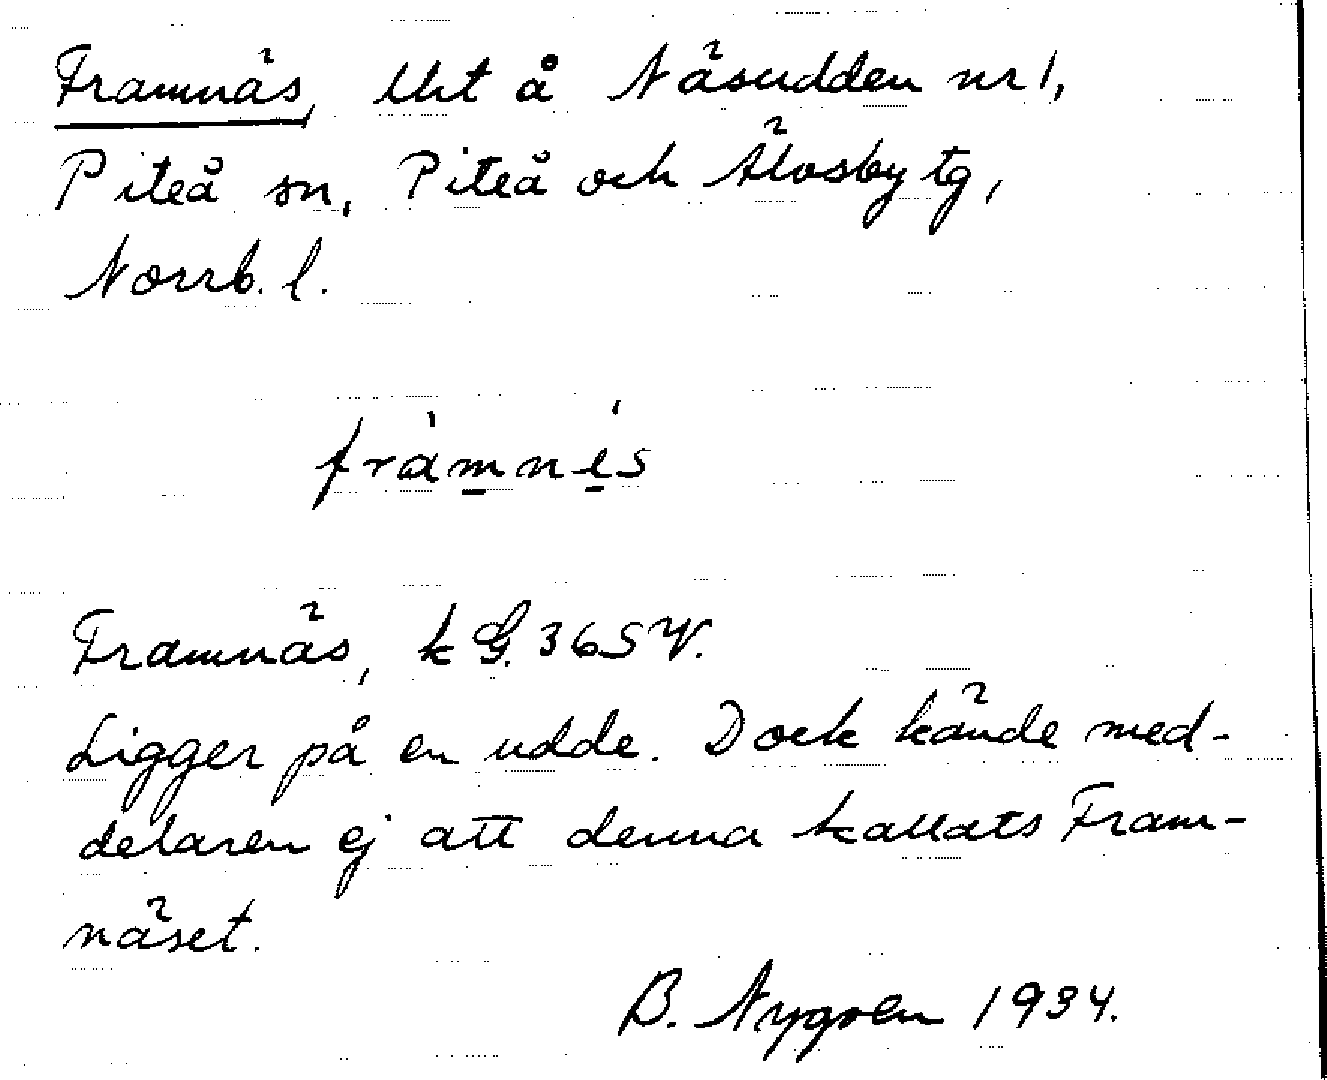 Framnäs, Uht å Näsudden nr 1,
Piteå sn, Piteå och Älvsby tg,
Norrb. l.
fràmnés
Framnäs, k G. 365 V.
Ligger på en udde. Dock kände med-
delaren ej att denna kallats Fram-
näset.
B. Nygren 1934.